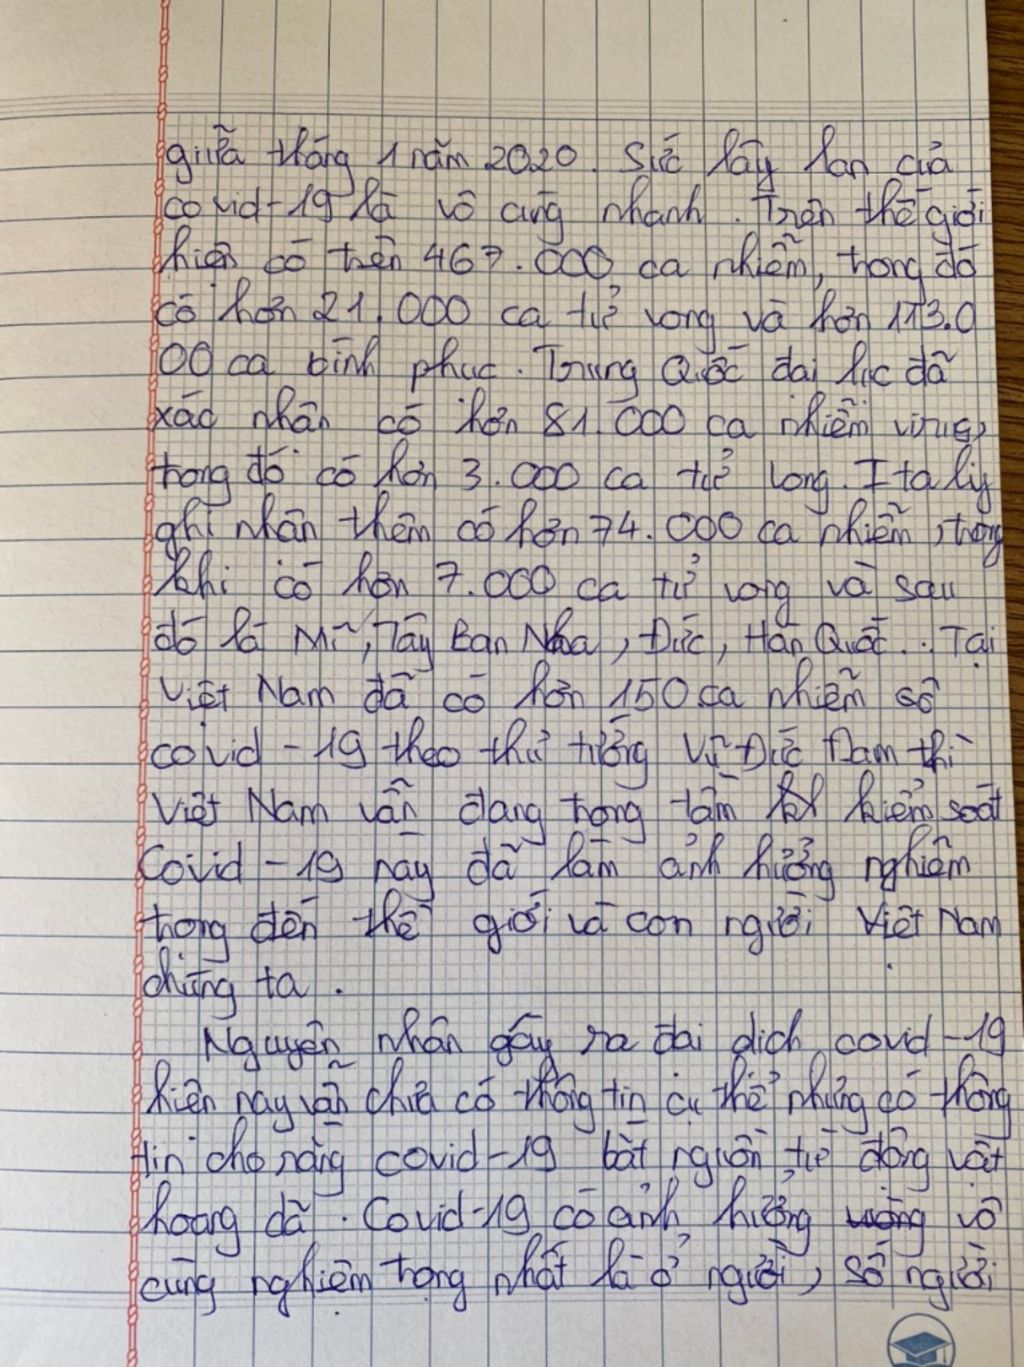 giữa tháng 1 năm 2020. Sức lây lan của
covid-19 là vô cùng nhanh. Trên thế giới
hiện có trên 467.000 ca nhiễm, trong đó
có hơn 21.000 ca tử vong và hơn 113.0
00 ca bình phục. Trung Quốc đại lục đã
xác nhận có hơn 81.000 ca nhiễm virus,
trong đó có hơn 3.000 ca tử vong. Italy
ghi nhận thêm có hơn 74.000 ca nhiễm, trong
khi có hơn 7.000 ca tử vong và sau
đó là Mĩ, Tây Ban Nha, Đức, Hàn Quốc... Tại
Việt Nam đã có hơn 150 ca nhiễm số
covid-19 theo thủ tướng Vũ Đức Đam thì
Việt Nam vẫn đang trong tầm kiểm soát
Covid-19 này đã làm ảnh hưởng nghiêm
trọng đến thế giới và con người Việt Nam
chúng ta.
Nguyên nhân gây ra đại dịch covid-19
hiện nay vẫn chưa có thông tin cụ thể nhưng có thông
tin cho rằng covid-19 bắt nguồn từ động vật
hoang dã. Covid-19 có ảnh hưởng vô
cùng nghiêm trọng nhất là ở người, số người